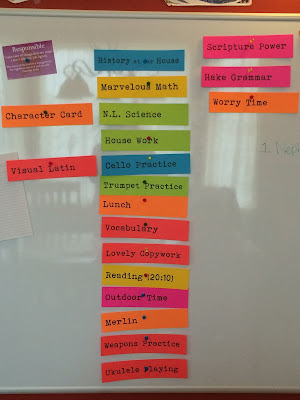 Responsible
Character Card
Visual Latin
History at our House
Marvelous Math
N.L. Science
House Work
Cello Practice
Trumpet Practice
Lunch
Vocabulary
Lovely Copywork
Reading (20:10)
Outdoor Time
Merlin
Weapons Practice
Ukulele Playing
Scripture Power
Hake Grammar
Worry Time